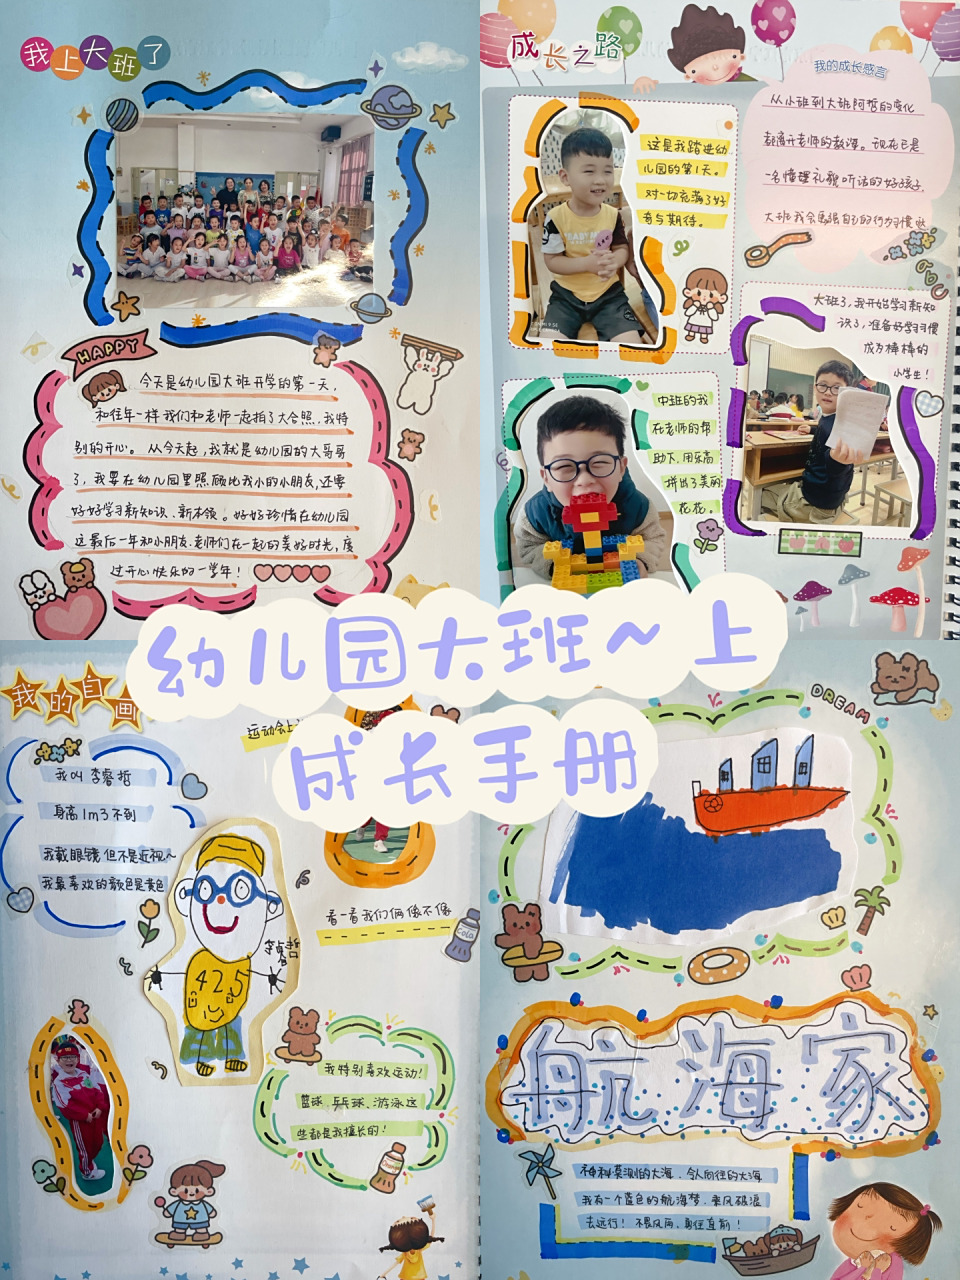 我上大班了
HAPPY
今天是幼儿园大班开学的第一天,
和往年一样我们和老师一起拍了大合照,我特
别的开心。从今天起,我就是幼儿园的大哥哥
了,我要在幼儿园里照顾比我小的小朋友,还要
好好学习新知识、新本领。好好珍惜在幼儿园
这最后一年和小朋友.老师们在一起的美好时光,度
过开心快乐的一学年!
成长之路
我的成长感言
从小班到大班阿哲的变化
都离开老师的教导。现在已是
一名懂理礼貌听话的好孩子.
大班我会更强自己的行为习惯
这是我踏进幼
儿园的第1天。
对一切充满了好
奇与期待。
abc
大班了,我开始学习新知
识了,准备好学习习惯
成为棒棒的
小学生!
中班的我
在老师的帮
助下,用乐高
拼出了美丽
花花。
幼儿园大班~上
成长手册
我的自画
我叫李睿哲
身高1m3不到
我戴眼镜但不是近视~
我最喜欢的颜色是黄色
运动会上
看一看我们俩像不像
cola
425
我特别喜欢运动!
篮球、乒乓球、游泳这
些都是我擅长的!
DREAM
航海家
神秘莫测的大海,令人向往的大海
我有一个蓝色的航海梦,乘风破浪
去远行!不畏风雨,勇往直前!